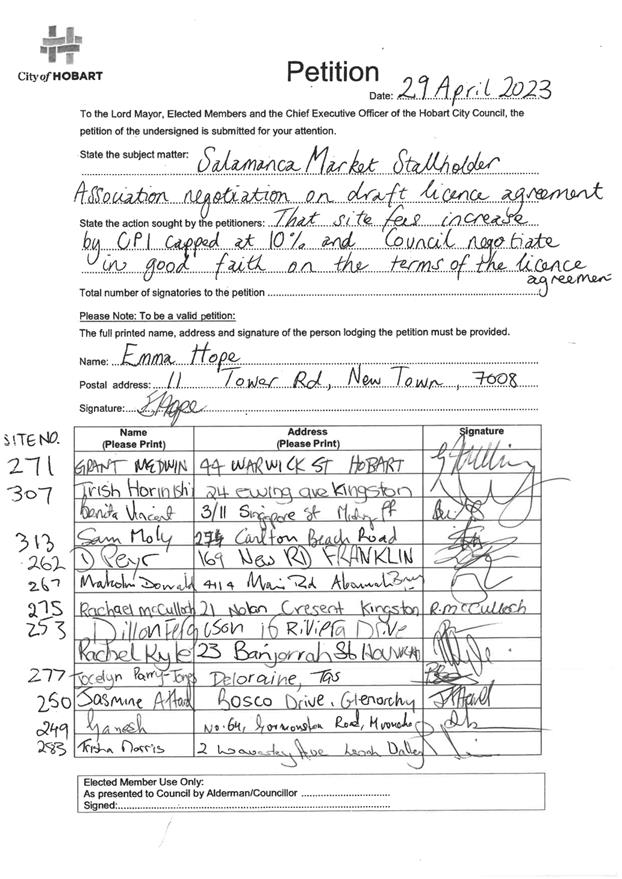 City of HOBART
Petition
Date: 29 April 2023
To the Lord Mayor, Elected Members and the Chief Executive Officer of the Hobart City Council, the
petition of the undersigned is submitted for your attention.
State the subject matter: Salamanca Market Stallholder
Association negotiation on draft licence agreement
State the action sought by the petitioners: That site fees increase
by CPI capped at 10% and Council negotiate
in good faith on the terms of the licence
agreemen
Total number of signatories to the petition
Please Note: To be a valid petition:
The full printed name, address and signature of the person lodging the petition must be provided.
Name: Emma Hope
Postal address: 11 Tower Rd, New Town, 7008
Signature: EHope
SITE NO. Name Address Signature
(Please Print) (Please Print)
271 GRANT MEDWIN 44 WARWICK ST HOBART
307 Trish Horinishi 24 ewing ave Kingston
Benita Vincent 3/11 Singapore St
313 Sam Moly Carlton Beach Road
262 D Peyr 169 New RD FRANKLIN
267 Malcolm Donnald 4114 Main Rd
275 Rachael McCulloch 21 Nolan Cresent Kingston R.McCulloch
253 Dillon Ferguson 16 Riviera Drive
Rachel Kyle 23 Banjorrah St Howrah
277 Jocelyn Parry-Jones Deloraine, Tas
250 Jasmine Bosco Drive, Glenorchy
249 Ganesh No.64, Gormanston Road, Moonah
283 Trisha Morris 2 Waverley Ave Lenah Valley
Elected Member Use Only:
As presented to Council by Alderman/Councillor
Signed: